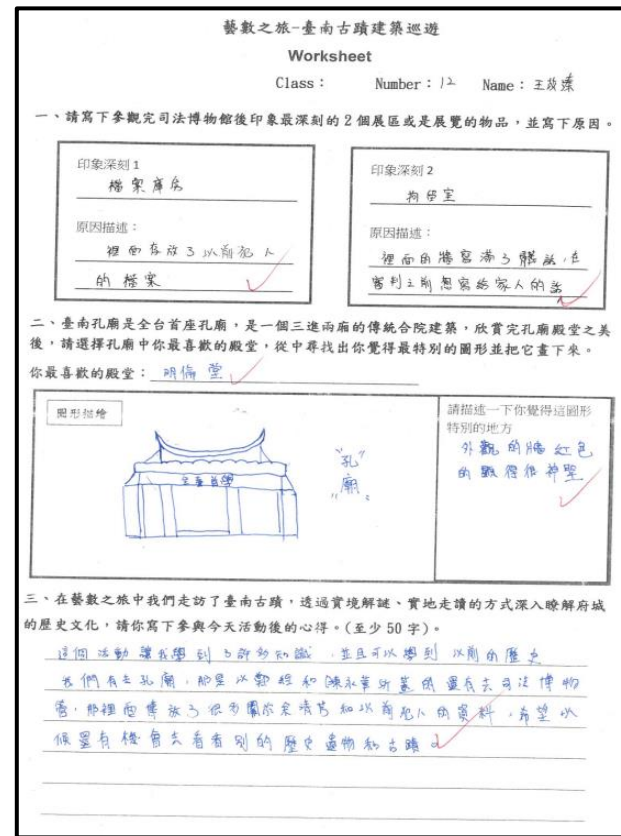 藝數之旅-臺南古蹟建築巡遊
Worksheet
Class： Number：12 Name：王
一、請寫下參觀完司法博物館後印象最深刻的 2 個展區或是展覽的物品，並寫下原因。
印象深刻 1
檔案庫房
原因描述：
裡面存放了以前犯人
的檔案
印象深刻 2
拘留室
原因描述：
裡面的牆寫滿了髒話,在
審判之前想寫給家人的話
二、臺南孔廟是全台首座孔廟，是一個三進兩廂的傳統合院建築，欣賞完孔廟殿堂之美
後，請選擇孔廟中你最喜歡的殿堂，從中尋找出你覺得最特別的圖形並把它畫下來。
你最喜歡的殿堂：明倫堂
圖形描繪
全臺首學
"孔
廟"
請描述一下你覺得這圖形
特別的地方
外觀的牆紅色
的顯得很神聖
三、在藝數之旅中我們走訪了臺南古蹟，透過實境解謎、實地走讀的方式深入瞭解府城
的歷史文化，請你寫下參與今天活動後的心得。(至少 50 字)。
這個活動讓我學到了許多知識，並且可以學到以前的歷史
我們有去孔廟，那是以鄭經和陳永華所蓋的還有去司法博物
館，那裡面存放了很多 和以前犯人的資料，希望以
候還有機會去看看別的歷史遺物和古蹟。